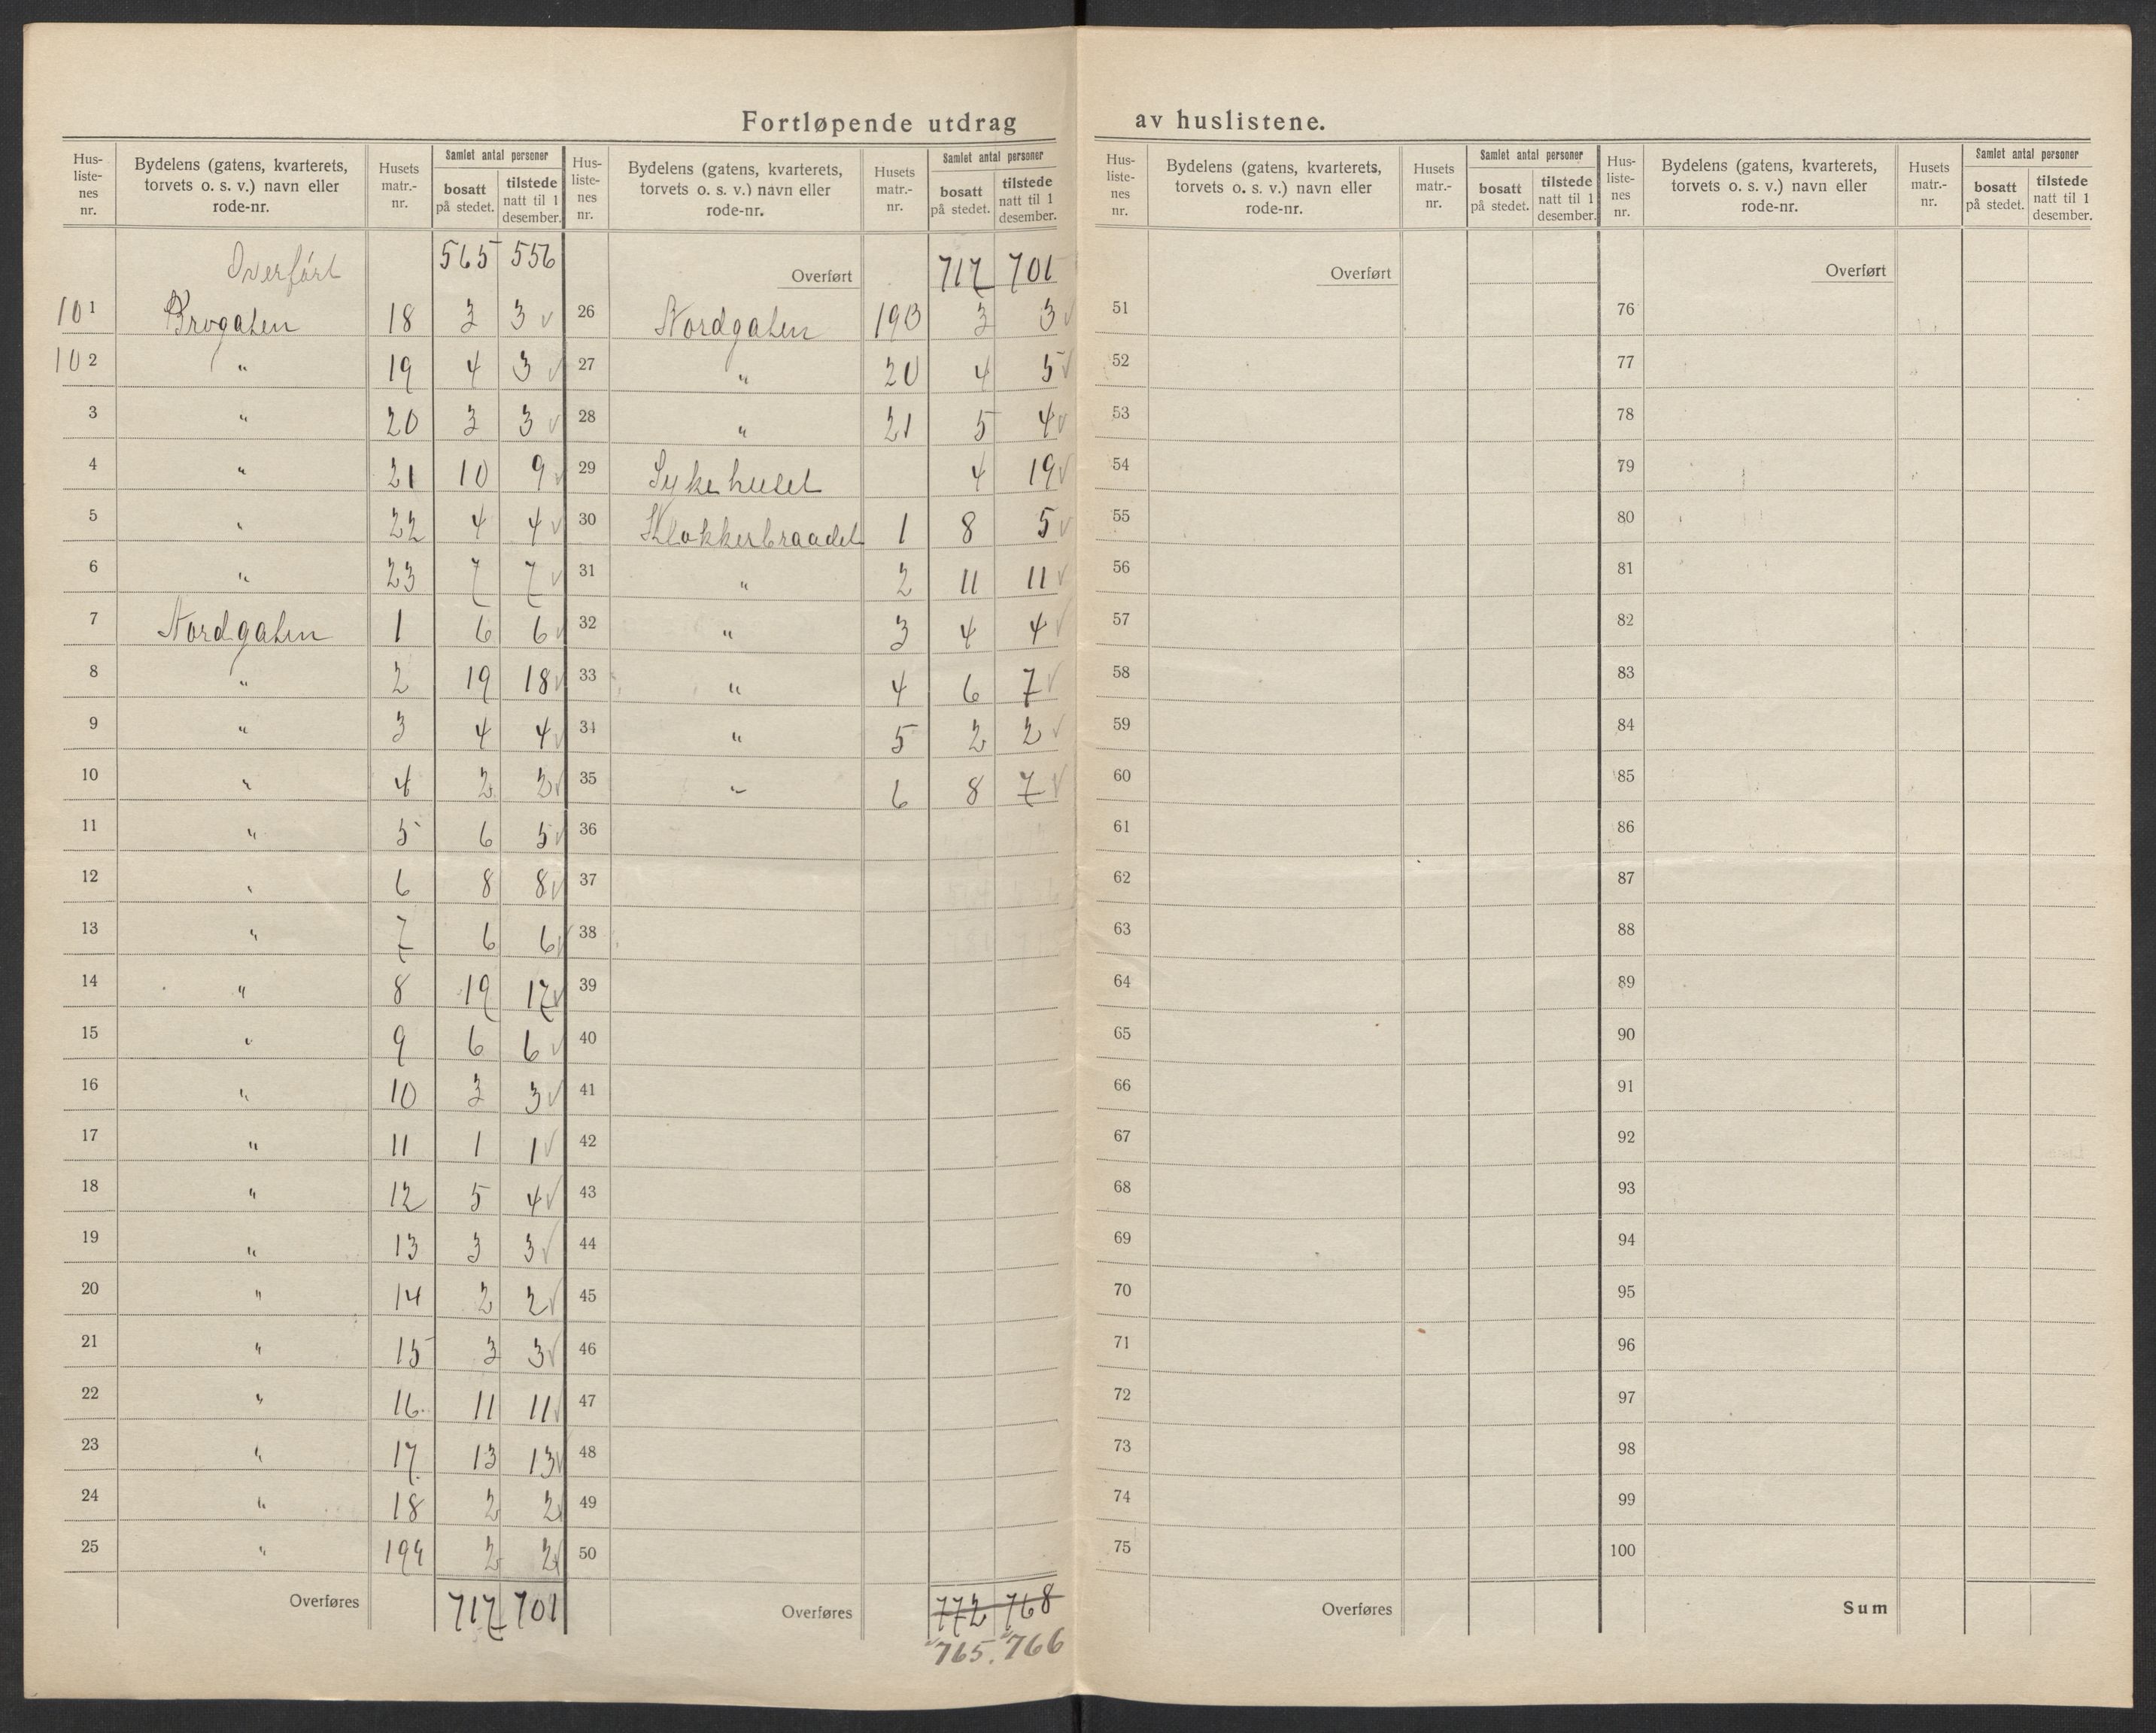 Fortløpende utdrag av huslistene.
Hus-liste-nes nr. | Bydelens (gatens, kvarterets, torvets o. s. v.) navn eller rode-nr. | Husets matr.-nr. | Samlet antal personer bosatt på stedet. | tilstede natt til 1 desember.
Overført 565 556
101 Brogaten 18 3 3 ✓
102 " 19 4 3 ✓
3 " 20 3 3 ✓
4 " 21 10 9 ✓
5 " 22 4 4 ✓
6 " 23 7 7 ✓
7 Nordgaten 1 6 6 ✓
8 " 2 19 18 ✓
9 " 3 4 4 ✓
10 " 4 2 2 ✓
11 " 5 6 5 ✓
12 " 6 8 8 ✓
13 " 7 6 6 ✓
14 " 8 19 17 ✓
15 " 9 6 6 ✓
16 " 10 3 3 ✓
17 " 11 1 1 ✓
18 " 12 5 4 ✓
19 " 13 3 3 ✓
20 " 14 2 2 ✓
21 " 15 3 3 ✓
22 " 16 11 11 ✓
23 " 17 13 13 ✓
24 " 18 2 2 ✓
25 " 19 2 2 ✓
Overføres 717 701
Hus-liste-nes nr. | Bydelens (gatens, kvarterets, torvets o. s. v.) navn eller rode-nr. | Husets matr.-nr. | Samlet antal personer bosatt på stedet. | tilstede natt til 1 desember.
Overført 717 701
26 Nordgaten 19B 3 3 ✓
27 " 20 4 5 ✓
28 " 21 5 4 ✓
29 Sykehuset 4 19 ✓
30 Klokkerbraadet 1 8 5 ✓
31 " 2 11 11 ✓
32 " 3 4 4 ✓
33 " 4 6 7 ✓
34 " 5 2 2 ✓
35 " 6 8 7 ✓
36
37
38
39
40
41
42
43
44
45
46
47
48
49
50
Overføres 772 768
765. 766
Hus-liste-nes nr. | Bydelens (gatens, kvarterets, torvets o. s. v.) navn eller rode-nr. | Husets matr.-nr. | Samlet antal personer bosatt på stedet. | tilstede natt til 1 desember.
Overført
51
52
53
54
55
56
57
58
59
60
61
62
63
64
65
66
67
68
69
70
71
72
73
74
75
Overføres
Hus-liste-nes nr. | Bydelens (gatens, kvarterets, torvets o. s. v.) navn eller rode-nr. | Husets matr.-nr. | Samlet antal personer bosatt på stedet. | tilstede natt til 1 desember.
Overført
76
77
78
79
80
81
82
83
84
85
86
87
88
89
90
91
92
93
94
95
96
97
98
99
100
Sum